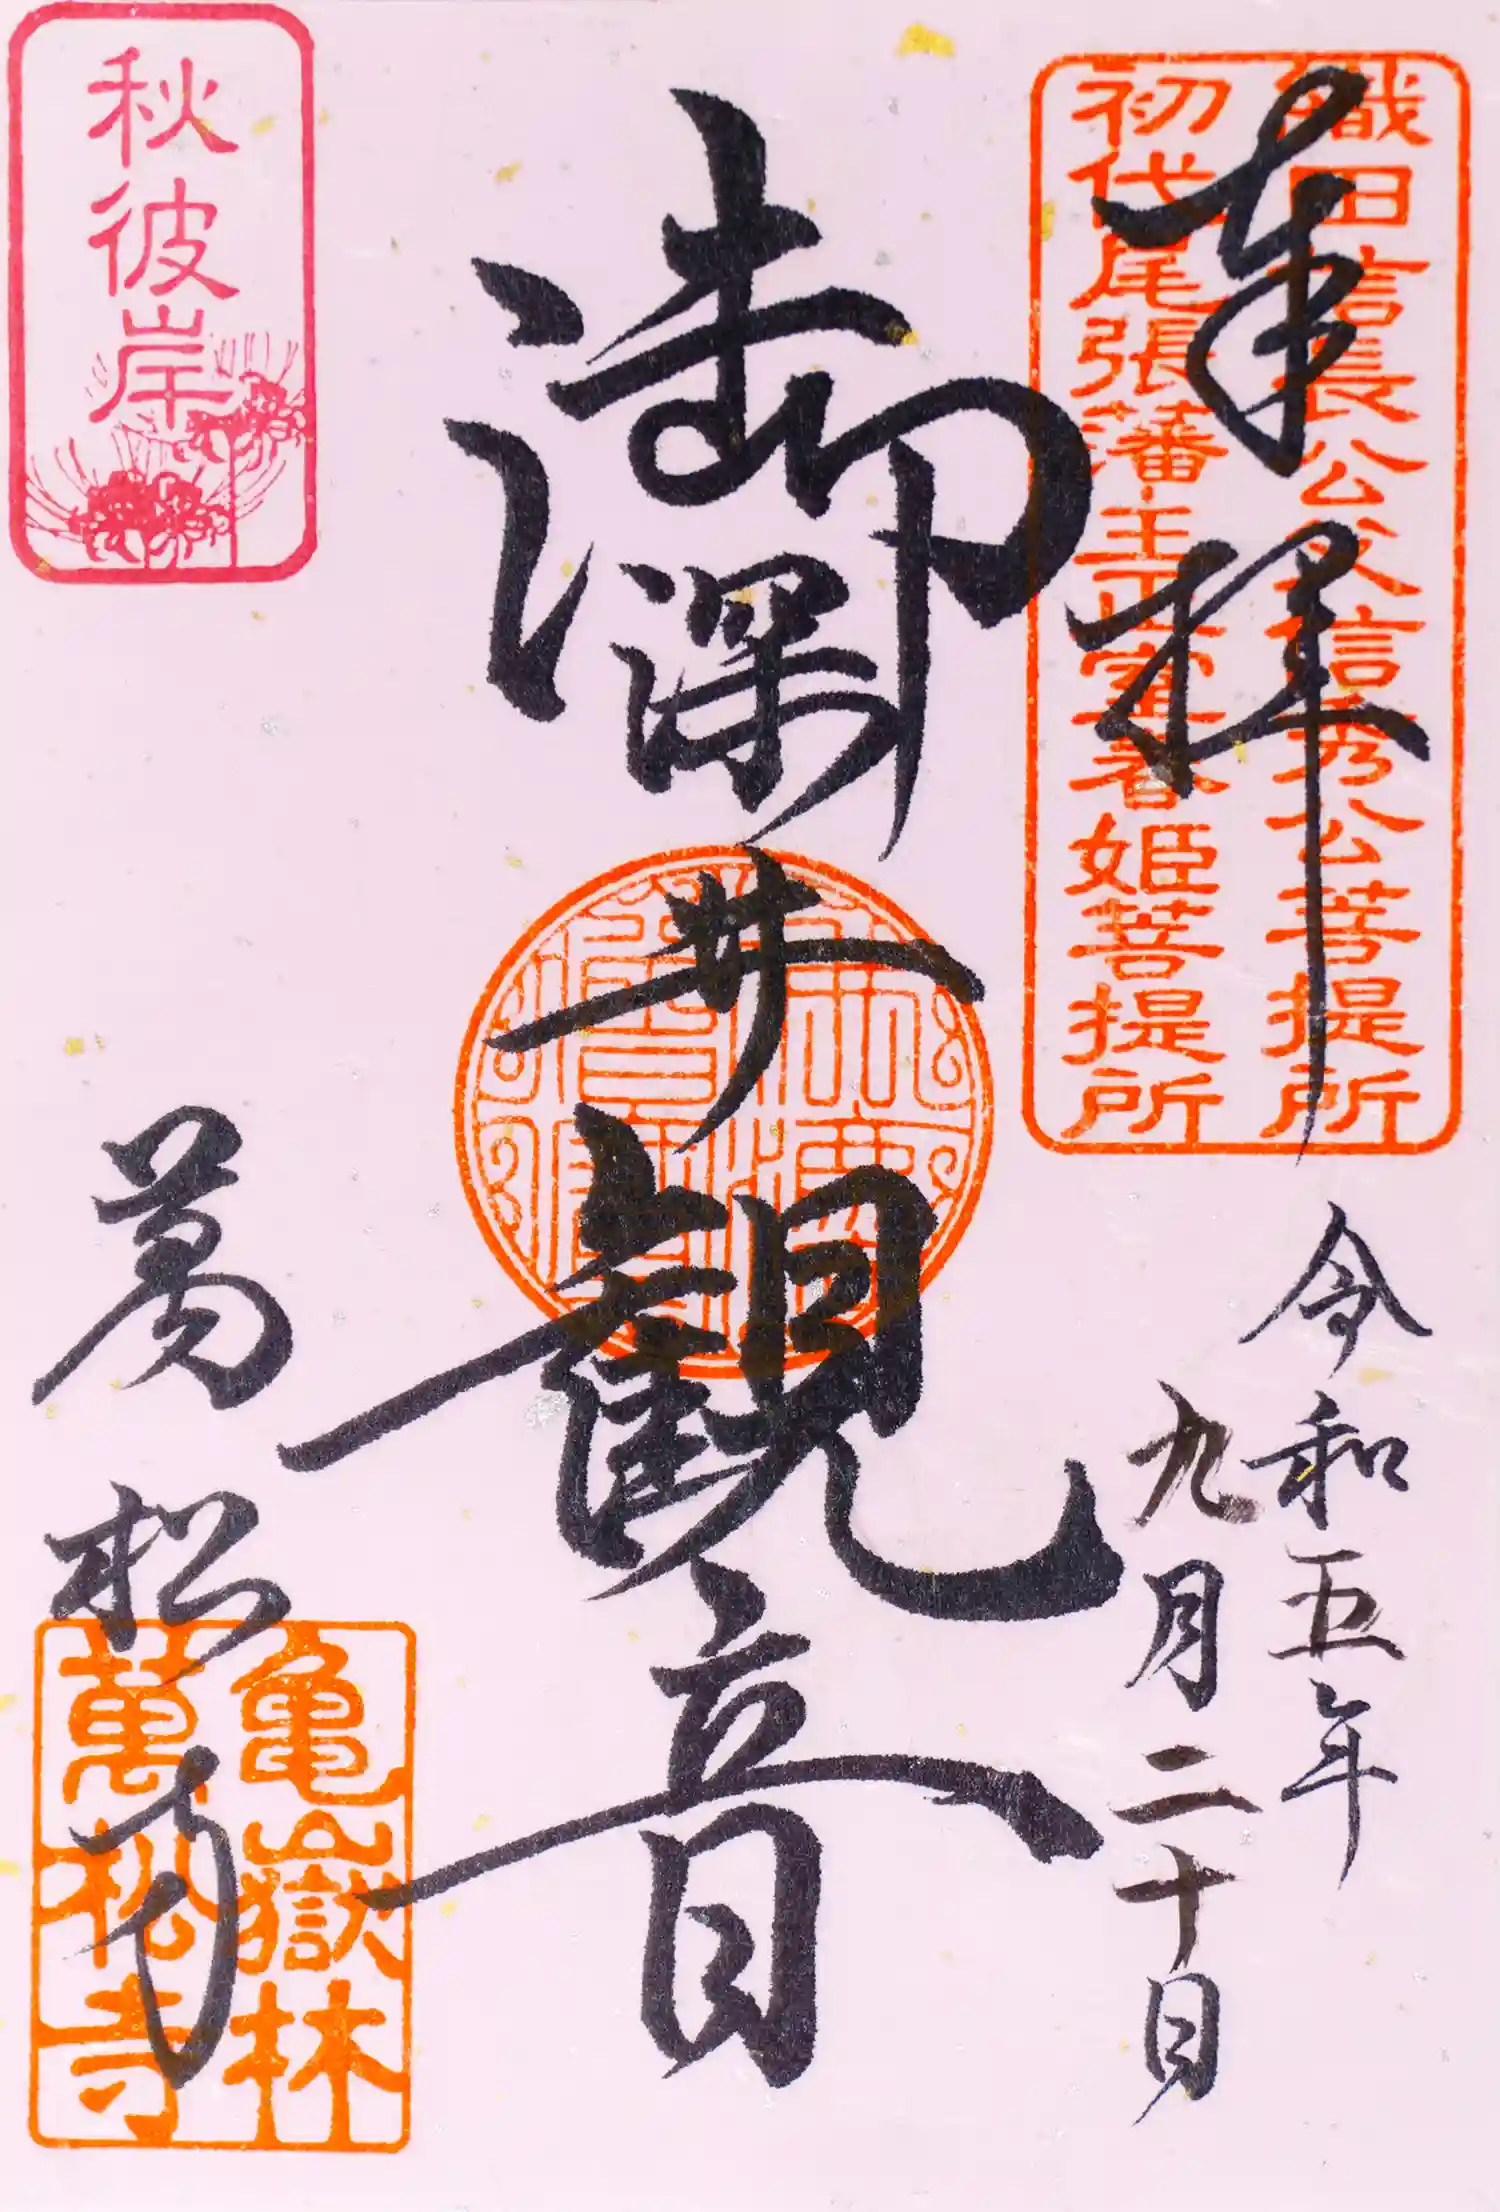 奉拝
織田信長公父信秀公菩提所
初代尾張藩主正室春姫菩提所
令和五年
九月二十日
御深井観音
秋彼岸
萬松寺
亀嶽林
萬松寺